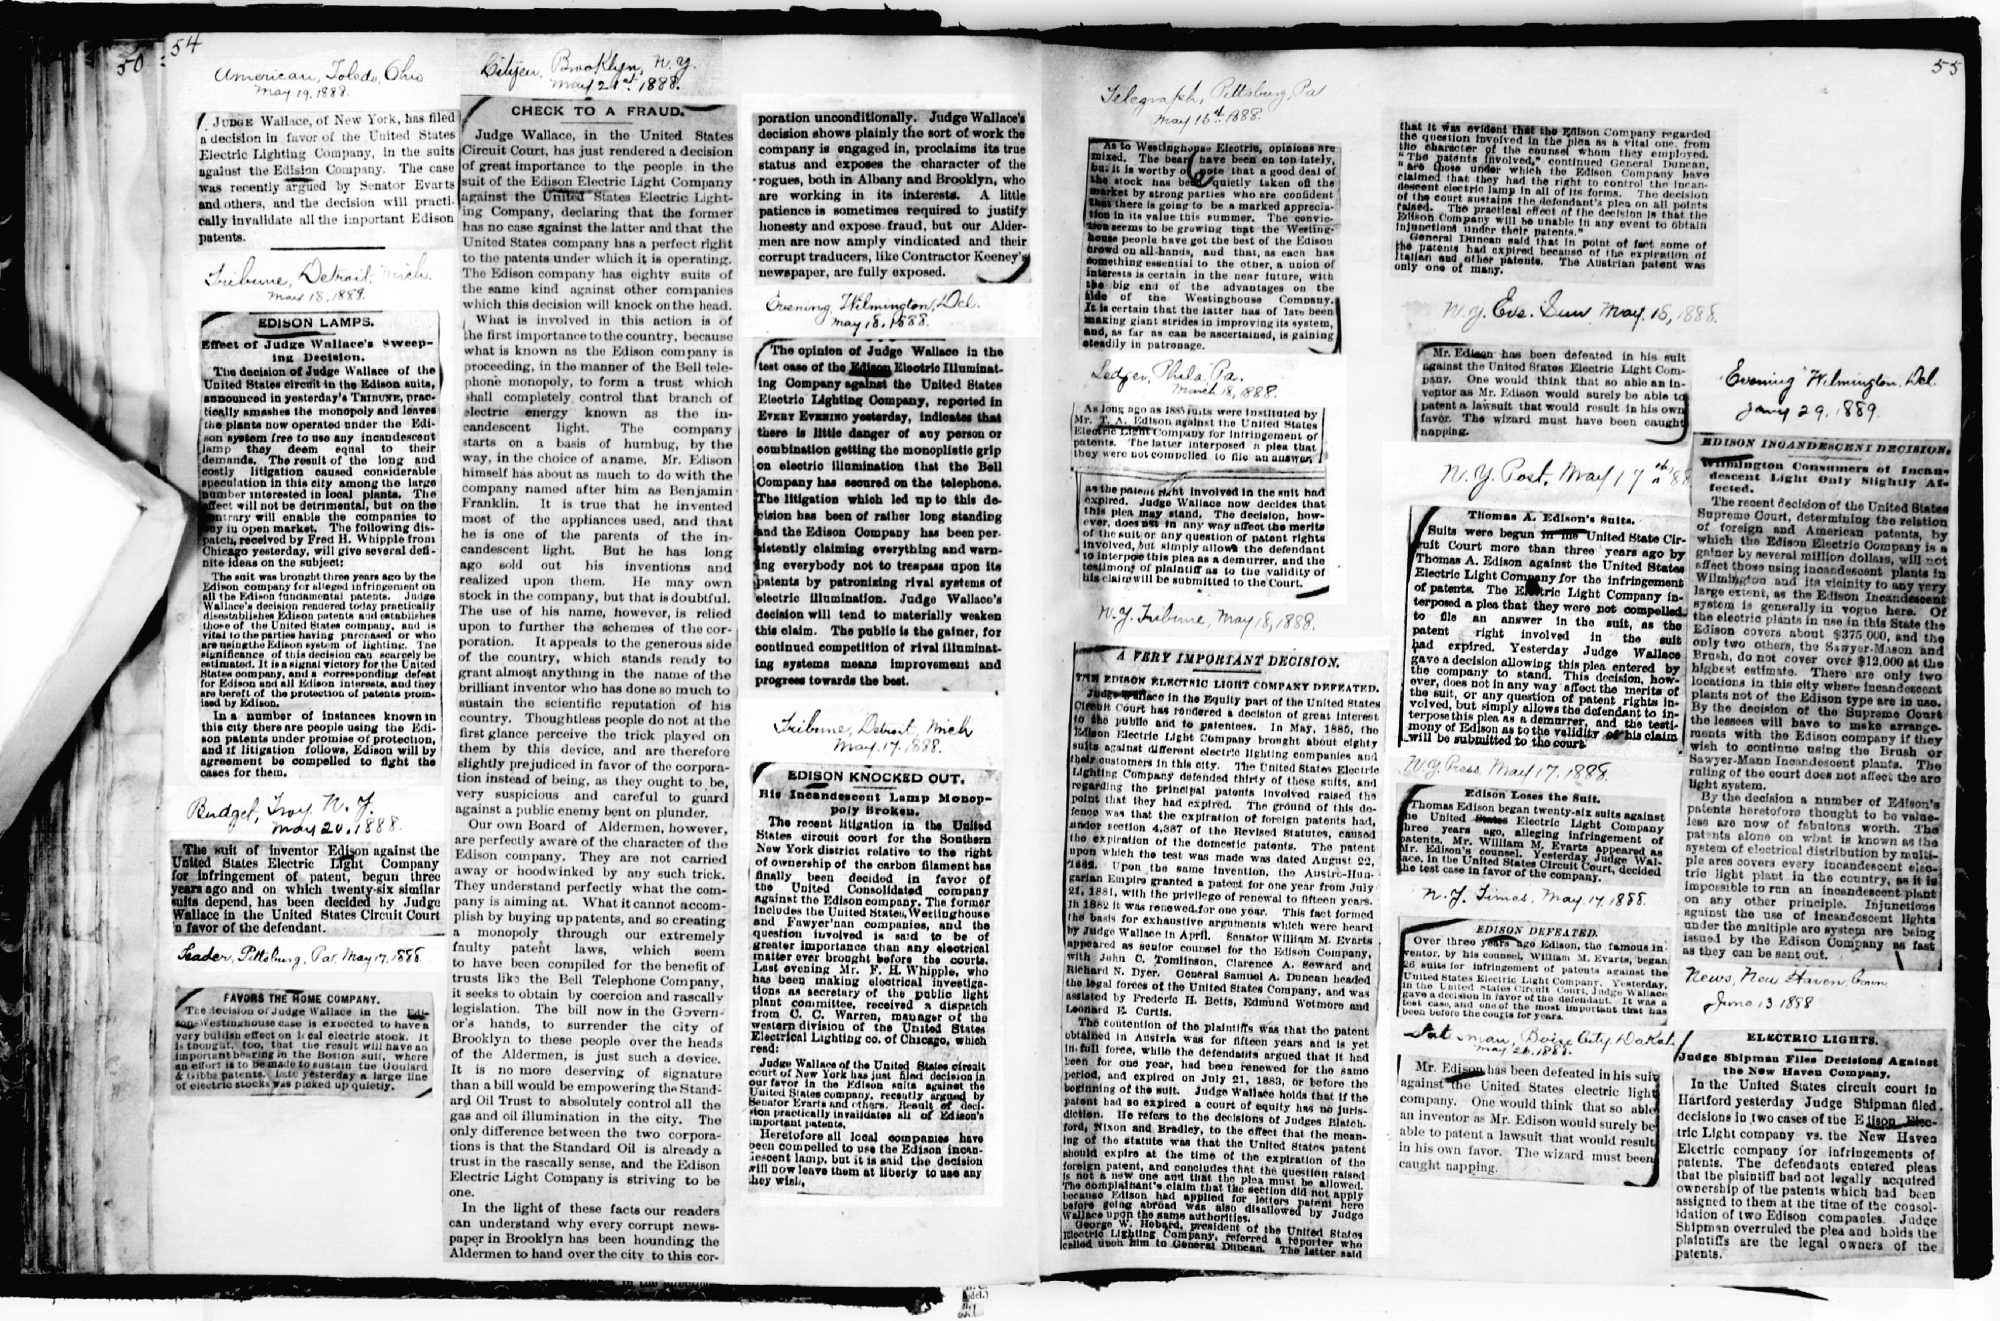 50
54
American, Toledo, Ohio
May 19, 1888.
JUDGE Wallace, of New York, has filed
a decision in favor of the United States
Electric Lighting Company, in the suits
against the Edision Company. The case
was recently argued by Senator Evarts
and others, and the decision will practi-
cally invalidate all the important Edison
patents.
Tribune, Detroit, Mich.
May 18, 1888.
EDISON LAMPS.
Effect of Judge Wallace's Sweep-
ing Decision.
The decision of Judge Wallace of the
United States circuit in the Edison suits,
announced in yesterday's TRIBUNE, prac-
tically smashes the monopoly and leaves
the plants now operated under the Edi-
son system free to use any incandescent
lamp they deem equal to their
demands. The result of the long and
costly litigation caused considerable
speculation in this city among the large
number interested in local plants. The
effect will not be detrimental, but on the
contrary will enable the companies to
buy in open market. The following dis-
patch, received by Fred H. Whipple from
Chicago yesterday, will give several defi-
nite ideas on the subject:
The suit was brought three years ago by the
Edison company for alleged infringement on
all the Edison fundamental patents. Judge
Wallace's decision rendered today practically
disestablishes Edison patents and establishes
those of the United States company, and is
vital to the parties having purchased or who
are using the Edison system of lighting. The
significance of this decision can scarcely be
estimated. It is a signal victory for the United
States company, and a corresponding defeat
for Edison and all Edison interests, and they
are bereft of the protection of patents prom-
ised by Edison.
In a number of instances known in
this city there are people using the Edi-
son patents under promise of protection,
and if litigation follows, Edison will by
agreement be compelled to fight the
cases for them.
Budget, Troy, N. Y.
May 20, 1888.
The suit of inventor Edison against the
United States Electric Light Company
for infringement of patent, begun three
years ago and on which twenty-six similar
suits depend, has been decided by Judge
Wallace in the United States Circuit Court
n favor of the defendant.
Leader, Pittsburg, Pa. May 17, 1888.
FAVORS THE HOME COMPANY.
The decision of Judge Wallace in the Edi-
son-Westinghouse case is expected to have a
very bullish effect on local electric stock. It
is thought, too, that the result will have an
important bearing in the Boston suit, where
an effort is to be made to sustain the Goulard
& Gibbs patents. Late yesterday a large line
of electric stocks was picked up quietly.
Citizen, Brooklyn, N. Y.
May 21st, 1888.
CHECK TO A FRAUD.
Judge Wallace, in the United States
Circuit Court, has just rendered a decision
of great importance to the people in the
suit of the Edison Electric Light Company
against the United States Electric Light-
ing Company, declaring that the former
has no case against the latter and that the
United States company has a perfect right
to the patents under which it is operating.
The Edison company has eighty suits of
the same kind against other companies
which this decision will knock on the head.
What is involved in this action is of
the first importance to the country, because
what is known as the Edison company is
proceeding, in the manner of the Bell tele-
phone monopoly, to form a trust which
shall completely control that branch of
electric energy known as the in-
candescent light. The company
starts on a basis of humbug, by the
way, in the choice of aname. Mr. Edison
himself has about as much to do with the
company named after him as Benjamin
Franklin. It is true that he invented
most of the appliances used, and that
he is one of the parents of the in-
candescent light. But he has long
ago sold out his inventions and
realized upon them. He may own
stock in the company, but that is doubtful.
The use of his name, however, is relied
upon to further the schemes of the cor-
poration. It appeals to the generous side
of the country, which stands ready to
grant almost anything in the name of the
brilliant inventor who has done so much to
sustain the scientific reputation of his
country. Thoughtless people do not at the
first glance perceive the trick played on
them by this device, and are therefore
slightly prejudiced in favor of the corpora-
tion instead of being, as they ought to be,
very suspicious and careful to guard
against a public enemy bent on plunder.
Our own Board of Aldermen, however,
are perfectly aware of the character of the
Edison company. They are not carried
away or hoodwinked by any such trick.
They understand perfectly what the com-
pany is aiming at. What it cannot accom-
plish by buying up patents, and so creating
a monopoly through our extremely
faulty patent laws, which seem
to have been compiled for the benefit of
trusts like the Bell Telephone Company,
it seeks to obtain by coercion and rascally
legislation. The bill now in the Govern-
or's hands, to surrender the city of
Brooklyn to these people over the heads
of the Aldermen, is just such a device.
It is no more deserving of signature
than a bill would be empowering the Stand-
ard Oil Trust to absolutely control all the
gas and oil illumination in the city. The
only difference between the two corpora-
tions is that the Standard Oil is already a
trust in the rascally sense, and the Edison
Electric Light Company is striving to be
one.
In the light of these facts our readers
can understand why every corrupt news-
paper in Brooklyn has been hounding the
Aldermen to hand over the city to this cor-
poration unconditionally. Judge Wallace's
decision shows plainly the sort of work the
company is engaged in, proclaims its true
status and exposes the character of the
rogues, both in Albany and Brooklyn, who
are working in its interests. A little
patience is sometimes required to justify
honesty and expose fraud, but our Alder-
men are now amply vindicated and their
corrupt traducers, like Contractor Keeney's
newspaper, are fully exposed.
Evening, Wilmington, Del.
May 18, 1888.
The opinion of Judge Wallace in the
test case of the Edison Electric Illuminat-
ing Company against the United States
Electric Lighting Company, reported in
EVERY EVENING yesterday, indicates that
there is little danger of any person or
combination getting the monoplistic grip
on electric illumination that the Bell
Company has secured on the telephone.
The litigation which led up to this de-
cision has been of rather long standing
and the Edison Company has been per-
sistently claiming everything and warn-
ing everybody not to trespass upon its
patents by patronizing rival systems of
electric illumination. Judge Wallace's
decision will tend to materially weaken
this claim. The public is the gainer, for
continued competition of rival illuminat-
ing systems means improvement and
progress towards the best.
Tribune, Detroit, Mich
May 17, 1888.
EDISON KNOCKED OUT.
His Incandescent Lamp Monop-
poly Broken.
The recent litigation in the United
States circuit court for the Southern
New York district relative to the right
of ownership of the carbon filament has
finally been decided in favor of
the United Consolidated company
against the Edison company. The former
includes the United States, Westinghouse
and Fawyer'nan companies, and the
question involved is said to be of
greater importance than any electrical
matter ever brought before the courts.
Last evening Mr. F. H. Whipple, who
has been making electrical investiga-
tions as secretary of the public light
plant committee, received a dispatch
from C. C. Warren, manager of the
western division of the United States
Electrical Lighting co. of Chicago, which
read:
Judge Wallace of the United States circuit
court of New York has just filed decision in
our favor in the Edison suits against the
United States company, recently argued by
Senator Evarts and others. Result of deci-
sion practically invalidates all of Edison's
important patents.
Heretofore all local companies have
been compelled to use the Edison incan-
descent lamp, but it is said the decision
will now leave them at liberty to use any
they wish.
55
Telegraph, Pittsburg, Pa
May 16th, 1888.
As to Westinghouse Electric, opinions are
mixed. The bears have been on top lately,
but it is worthy of note that a good deal of
the stock has been quietly taken off the
market by strong parties who are confident
that there is going to be a marked apprecia-
tion in its value this summer. The convic-
tion seems to be growing that the Westing-
house people have got the best of the Edison
crowd on all-hands, and that, as each has
something essential to the other, a union of
interests is certain in the near future, with
the big end of the advantages on the
side of the Westinghouse Company.
It is certain that the latter has of late been
making giant strides in improving its system,
and, as far as can be ascertained, is gaining
steadily in patronage.
Ledger, Phila, Pa.
March 18, 1888.
As long ago as 1885 suits were instituted by
Mr. T. A. Edison against the United States
Electric Light Company for infringement of
patents. The latter interposed a plea that
they were not compelled to file an answer,
as the patent right involved in the suit had
expired. Judge Wallace now decides that
this plea may stand. The decision, how-
ever, does not in any way affect the merits
of the suit or any question of patent rights
involved, but simply allows the defendant
to interpose this plea as a demurrer, and the
testimony of plaintiff as to the validity of
his claim will be submitted to the Court.
N. Y. Tribune, May 18, 1888.
A VERY IMPORTANT DECISION.
THE EDISON ELECTRIC LIGHT COMPANY DEFEATED.
Judge Wallace in the Equity part of the United States
Circuit Court has rendered a decision of great interest
to the public and to patentees. In May, 1885, the
Edison Electric Light Company brought about eighty
suits against different electric lighting companies and
their customers in this city. The United States Electric
Lighting Company defended thirty of these suits, and
regarding the principal patents involved raised the
point that they had expired. The ground of this de-
fence was that the expiration of foreign patents had,
under section 4,887 of the Revised Statutes, caused
the expiration of the domestic patents. The patent
upon which the test was made was dated August 22,
1882. Upon the same invention, the Austro-Hun-
garian Empire granted a patent for one year from July
21, 1881, with the privilege of renewal to fifteen years.
In 1882 it was renewed for one year. This fact formed
the basis for exhaustive arguments which were heard
by Judge Wallace in April. Senator William M. Evarts
appeared as senior counsel for the Edison Company,
with John C. Tomlinson, Clarence A. Seward and
Richard N. Dyer. General Samuel A. Duncan headed
the legal forces of the United States Company, and was
assisted by Frederic H. Betts, Edmund Wetmore and
Leonard E. Curtis.
The contention of the plaintiffs was that the patent
obtained in Austria was for fifteen years and is yet
in full force, while the defendants argued that it had
been for one year, had been renewed for the same
period, and expired on July 21, 1883, or before the
beginning of the suit. Judge Wallace holds that if the
patent had so expired a court of equity has no juris-
diction. He refers to the decisions of Judges Blatch-
ford, Nixon and Bradley, to the effect that the mean-
ing of the statute was that the United States patent
should expire at the time of the expiration of the
foreign patent, and concludes that the question raised
is not a new one and that the plea must be allowed.
The complainant's claim that the section did not apply
because Edison had applied for letters patent here
before going abroad was also disallowed by Judge
Wallace upon the same authorities.
George W. Hebard, president of the United States
Electric Lighting Company, referred a reporter who
called upon him to General Duncan. The latter said
that it was evident that the Edison Company regarded
the question involved in the plea as a vital one, from
the character of the counsel whom they employed.
"The patents involved," continued General Duncan,
"are those under which the Edison Company have
claimed that they had the right to control the incan-
descent electric lamp in all of its forms. The decision
of the court sustains the defendant's plea on all points
raised. The practical effect of the decision is that the
Edison Company will be unable in any event to obtain
injunctions under their patents."
General Duncan said that in point of fact some of
the patents had expired because of the expiration of
Italian and other patents. The Austrian patent was
only one of many.
N. Y. Eve. Sun, May. 18, 1888.
Mr. Edison has been defeated in his suit
against the United States Electric Light Com-
pany. One would think that so able an in-
ventor as Mr. Edison would surely be able to
patent a lawsuit that would result in his own
favor. The wizard must have been caught
napping.
N. Y. Post, May 17th 88
Thomas A. Edison's Suits.
Suits were begun in the United State Cir-
cuit Court more than three years ago by
Thomas A. Edison against the United States
Electric Light Company for the infringement
of patents. The Electric Light Company in-
terposed a plea that they were not compelled
to file an answer in the suit, as the
patent right involved in the suit
had expired. Yesterday Judge Wallace
gave a decision allowing this plea entered by
the company to stand. This decision, how-
ever, does not in any way affect the merits of
the suit, or any question of patent rights in-
volved, but simply allows the defendant to in-
terpose this plea as a demurrer, and the testi-
mony of Edison as to the validity of his claim
will be submitted to the court.
N. Y. Press, May 17, 1888.
Edison Loses the Suit.
Thomas Edison began twenty-six suits against
the United States Electric Light Company
three years ago, alleging infringement of
patents. Mr. William M. Evarts appeared as
Mr. Edison's counsel. Yesterday Judge Wal-
lace, in the United States Circuit Court, decided
the test case in favor of the company.
N. Y. Times, May, 17, 1888.
EDISON DEFEATED.
Over three years ago Edison, the famous in-
ventor, by his counsel, William M. Evarts, began
26 suits for infringement of patents against the
United States Electric Light Company. Yesterday,
in the United States Circuit Court, Judge Wallace
gave a decision in favor of the defendant. It was a
test case, and one of the most important that has
been before the courts for years.
Statesman, Boise City, Dakota.
May 26, 1888.
Mr. Edison has been defeated in his suit
against the United States electric light
company. One would think that so able
an inventor as Mr. Edison would surely be
able to patent a lawsuit that would result
in his own favor. The wizard must been
caught napping.
"Evening" Wilmington, Del.
Jany 29, 1889.
EDISON INCANDESCENT DECISION.
Wilmington Consumers of Incan-
descent Light Only Slightly Af-
fected.
The recent decision of the United States
Supreme Court, determining the relation
of foreign and American patents, by
which the Edison Electric Company is a
gainer by several million dollars, will not
affect those using incandescent plants in
Wilmington and its vicinity to any very
large extent, as the Edison Incandescent
system is generally in vogue here. Of
the electric plants in use in this State the
Edison covers about $375,000, and the
only two others, the Sawyer-Mason and
Brush, do not cover over $12,000 at the
highest estimate. There are only two
locations in this city where incandescent
plants not of the Edison type are in use.
By the decision of the Supreme Court
the lessees will have to make arrange-
ments with the Edison company if they
wish to continue using the Brush or
Sawyer-Mann Incandescent plants. The
ruling of the court does not affect the arc
light system.
By the decision a number of Edison's
patents heretofore thought to be value-
less are now of fabulous worth. The
patents alone on what is known as the
system of electrical distribution by multi-
ple arcs covers every incandescent elec-
tric light plant in the country, as it is
impossible to run an incandescent plant
on any other principle. Injunctions
against the use of incandescent lights
under the multiple arc system are being
issued by the Edison Company as fast
as they can be sent out.
News, New Haven, Conn
June 13 1888
ELECTRIC LIGHTS.
Judge Shipman Files Decisions Against
the New Haven Company.
In the United States circuit court in
Hartford yesterday Judge Shipman filed
decisions in two cases of the Edison Elec-
tric Light company vs. the New Haven
Electric company for infringements of
patents. The defendants entered pleas
that the plaintiff had not legally acquired
ownership of the patents which had been
assigned to them at the time of the consol-
idation of two Edison companies. Judge
Shipman overruled the plea and holds the
plaintiffs are the legal owners of the
patents.